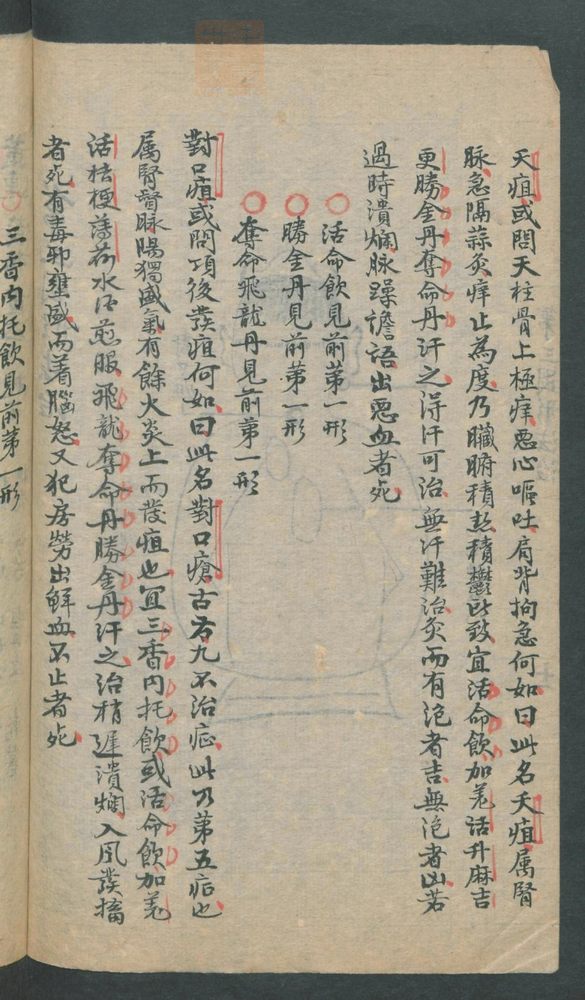 天疽或問天柱骨上極痒惡心嘔吐肩背拘急何如曰此名天疽属腎
脉急隔蒜灸痒止為度乃臟腑積热積鬱所致宜活命飲加羌活升麻吉
更勝金丹奪命丹汗之得汗可治無汗難治灸而有泡者吉無泡者凶若
過時潰爛脉躁譫語出惡血者死
活命飲見前第一形
勝金丹見前第一形
奪命飛龍丹見前第一形
對口疽或問項後發疽何如曰此名對口瘡古方九不治症此乃第五症也
属腎督脉陽獨盛氣有餘火炎上而發疽也宜三香內托飲或活命飲加羌
活桔梗薄荷水酒煎服飛龍奪命丹勝金丹汗之治稍遲潰爛入風發搐
者死有毒邪壅盛而著腦怒又犯房勞出鮮血不止者死
三香內托飲見前第一形